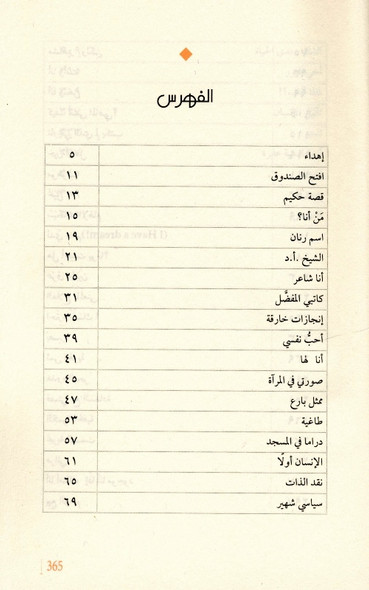 الفهرس
إهداء ٥
افتح الصندوق ١١
قصة حكيم ١٣
مَنْ أنا؟ ١٥
اسم رنان ١٩
الشيخ .أ.د ٢١
أنا شاعر ٢٥
كاتبي المفضَّل ٣١
إنجازات خارقة ٣٥
أحبُّ نفسي ٣٩
أنا لها ٤١
صورتي في المرآة ٤٥
ممثل بارع ٤٧
طاغية ٥٣
دراما في المسجد ٥٧
الإنسان أولًا ٦١
نقد الذات ٦٥
سياسي شهير ٦٩
365